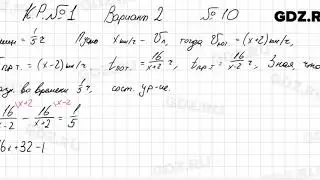 К.Р. №1 Вариант 2 № 10 GDZ.RU
1/5 ч Пусть x км/ч - Vл, тогда Vпо т. = (x+2) км/ч,
пр.т. = (x-2) км/ч t по т. = 16/(x+2) ч, t пр.т = 16/(x-2) ч, Зная что
во времени 1/5 ч, сост. ур-ие.
16/(x-2) \x+2 - 16/(x+2) \x-2 = 1/5
16x+32-1